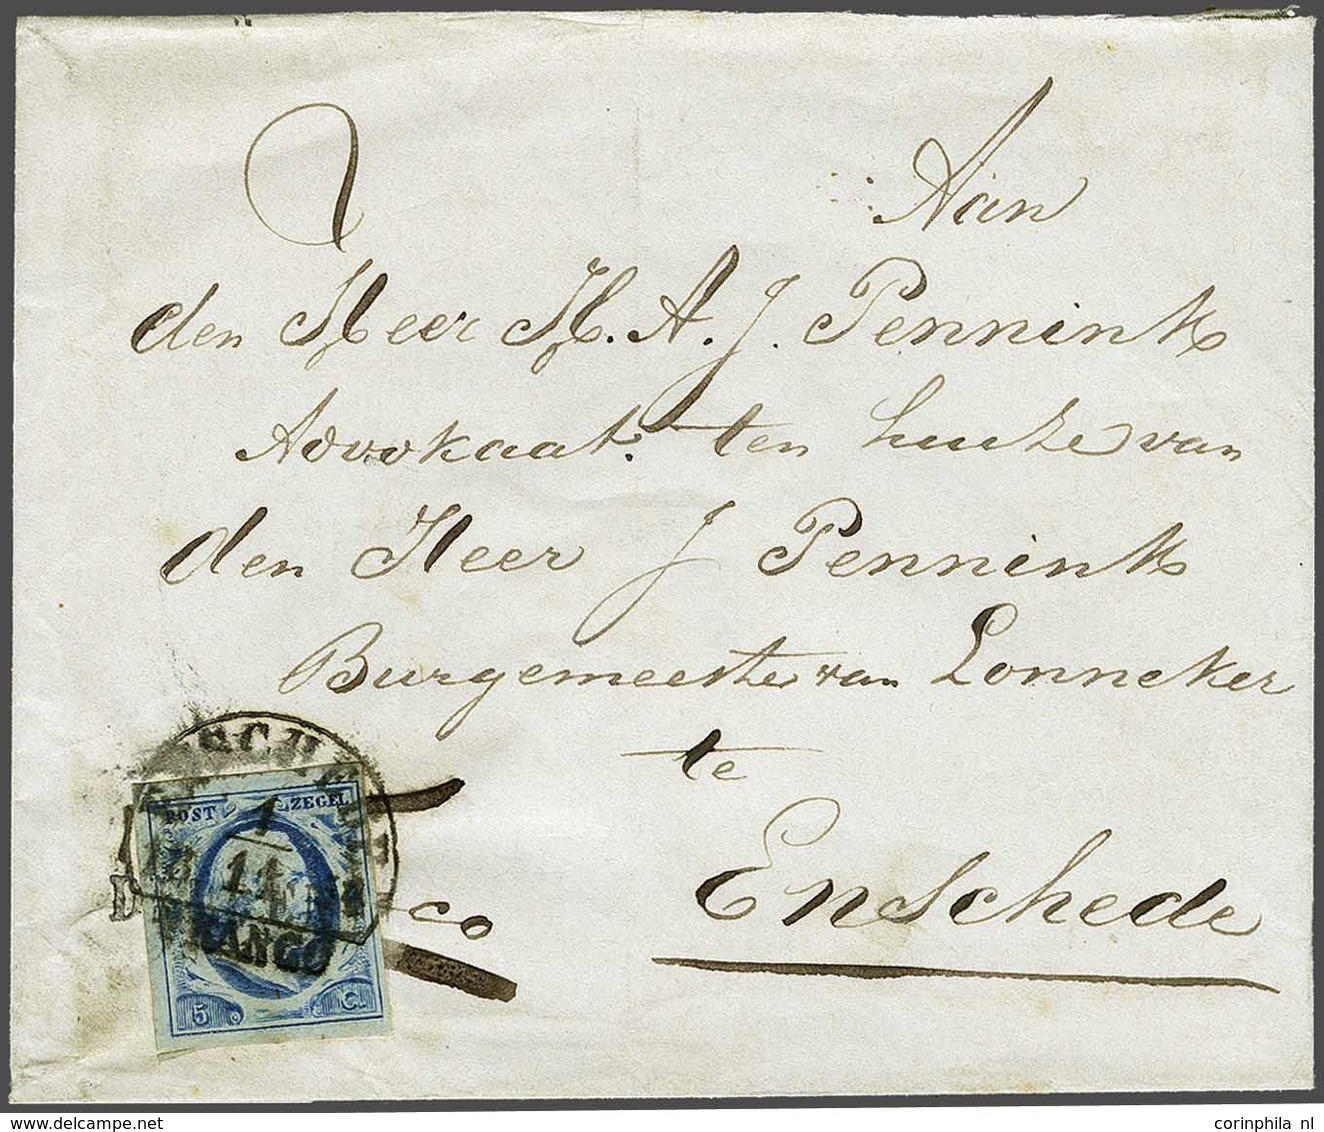 Aan
den Heer H. A. J. Pennink
Advokaat ten huize van
den Heer J Pennink
Burgemeester van Lonneker
te
Enschede
co
POST ZEGEL
1
14
FRANCO
5 C.
corinphila nl